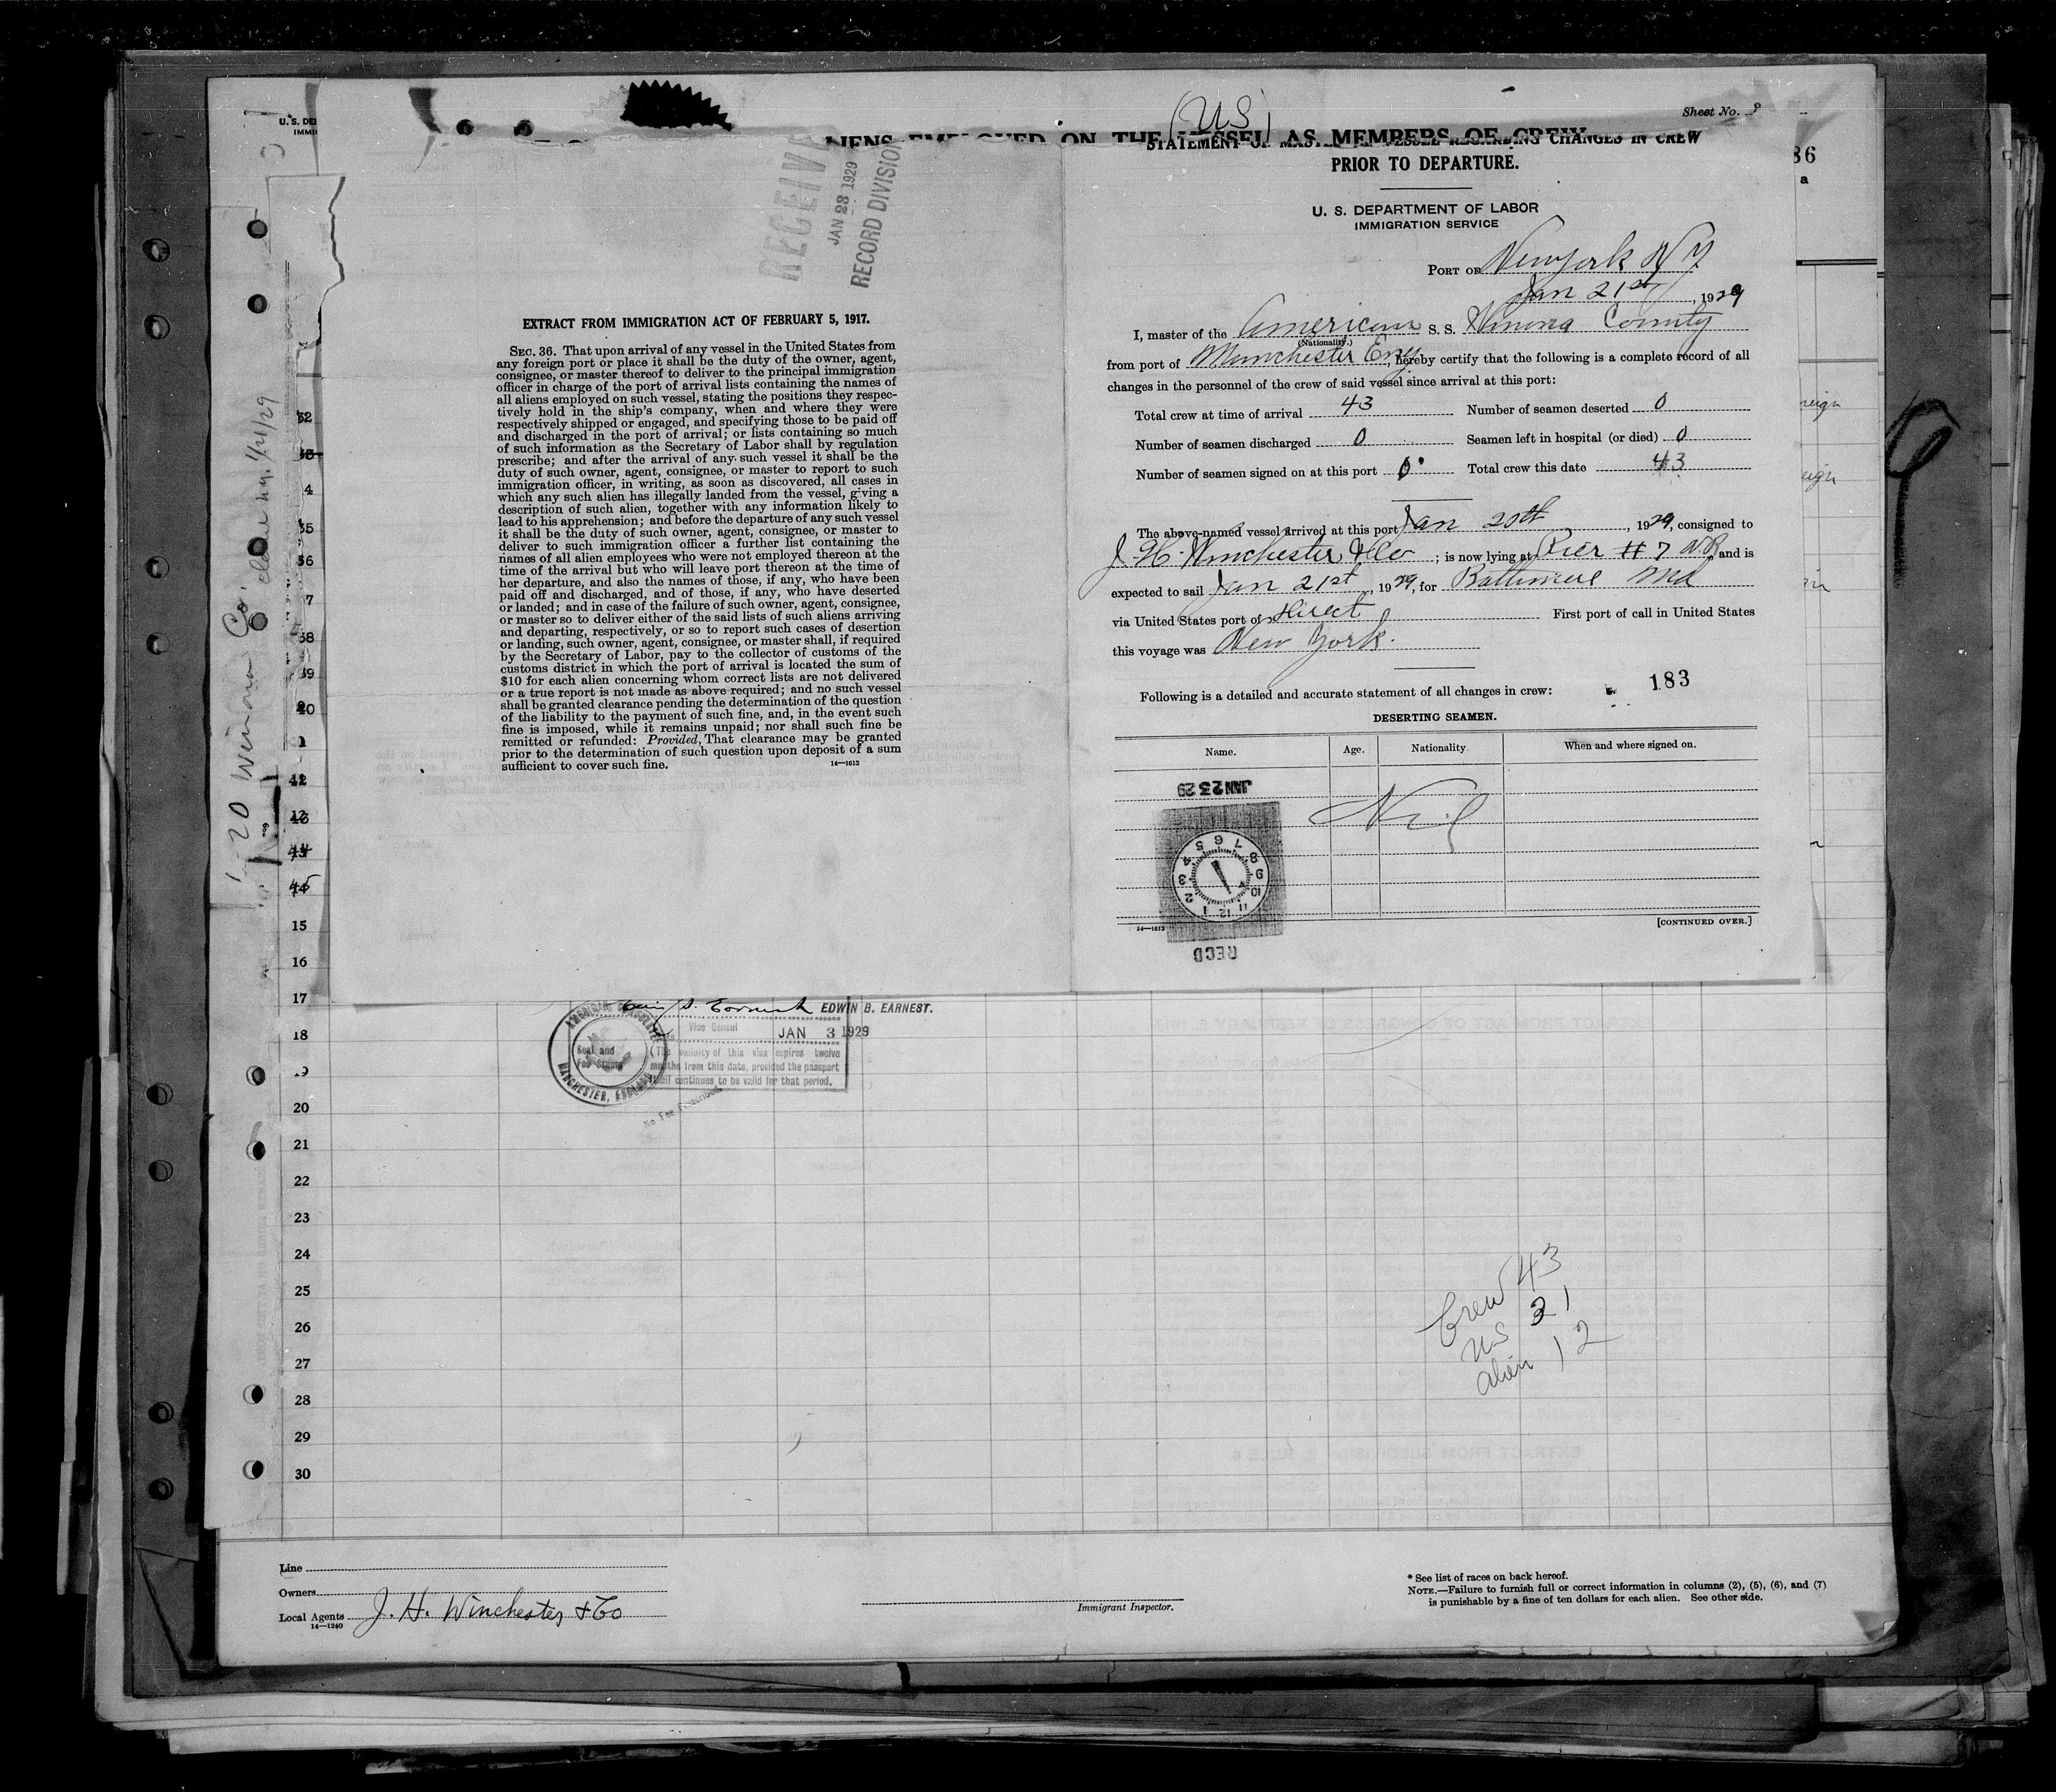 U. S. DE
IMMI
(US)
Sheet No.
ALIENS EMPLOYED ON THE VESSEL AS MEMBERS OF CREW
RECEIVE
JAN 28 1929
RECORD DIVISION
EXTRACT FROM IMMIGRATION ACT OF FEBRUARY 5, 1917.
SEC. 36. That upon arrival of any vessel in the United States from
any foreign port or place it shall be the duty of the owner, agent,
consignee, or master thereof to deliver to the principal immigration
officer in charge of the port of arrival lists containing the names of
all aliens employed on such vessel, stating the positions they respec-
tively hold in the ship's company, when and where they were
respectively shipped or engaged, and specifying those to be paid off
and discharged in the port of arrival; or lists containing so much
of such information as the Secretary of Labor shall by regulation
prescribe; and after the arrival of any such vessel it shall be the
duty of such owner, agent, consignee, or master to report to such
immigration officer, in writing, as soon as discovered, all cases in
which any such alien has illegally landed from the vessel, giving a
description of such alien, together with any information likely to
lead to his apprehension; and before the departure of any such vessel
it shall be the duty of such owner, agent, consignee, or master to
deliver to such immigration officer a further list containing the
names of all alien employees who were not employed thereon at the
time of the arrival but who will leave port thereon at the time of
her departure, and also the names of those, if any, who have been
paid off and discharged, and of those, if any, who have deserted
or landed; and in case of the failure of such owner, agent, consignee,
or master so to deliver either of the said lists of such aliens arriving
and departing, respectively, or so to report such cases of desertion
or landing, such owner, agent, consignee, or master shall, if required
by the Secretary of Labor, pay to the collector of customs of the
customs district in which the port of arrival is located the sum of
$10 for each alien concerning whom correct lists are not delivered
or a true report is not made as above required; and no such vessel
shall be granted clearance pending the determination of the question
of the liability to the payment of such fine, and, in the event such
fine is imposed, while it remains unpaid; nor shall such fine be
remitted or refunded: Provided, That clearance may be granted
prior to the determination of such question upon deposit of a sum
sufficient to cover such fine.
14—1613
STATEMENT OF MASTER OF VESSEL REGARDING CHANGES IN CREW
PRIOR TO DEPARTURE.
U. S. DEPARTMENT OF LABOR
IMMIGRATION SERVICE
PORT OF New York N Y
Jan 21st, 1929
I, master of the American S. S. Winona County
(Nationality.)
from port of Manchester Eng, hereby certify that the following is a complete record of all
changes in the personnel of the crew of said vessel since arrival at this port:
Total crew at time of arrival 43 Number of seamen deserted 0
Number of seamen discharged 0 Seamen left in hospital (or died) 0
Number of seamen signed on at this port 0 Total crew this date 43
The above-named vessel arrived at this port Jan 20th, 1929, consigned to
J. H. Winchester & Co; is now lying at Pier # 7 N.R. and is
expected to sail Jan 21st, 1929, for Baltimore Md
via United States port of Direct First port of call in United States
this voyage was New York.
Following is a detailed and accurate statement of all changes in crew:
183
DESERTING SEAMEN.
Name. Age. Nationality. When and where signed on.
Nil
JAN 23 29
REC'D
14—1613
[CONTINUED OVER.]
86
a
1-20 Winona Co.
1/21/29
32
4
35
36
37
38
39
40
41
42
15
16
17
18
19
20
21
22
23
24
25
26
27
28
29
30
EDWIN B. EARNEST.
Vice Consul
JAN 3 1929
Seal and
Fee Stamp
MANCHESTER, ENGLAND
(The validity of this visa expires twelve
months from this date, provided the passport
itself continues to be valid for that period.
No Fee Prescribed
Crew 43
US 31
alien 12
Line
Owners
Local Agents J. H. Winchester & Co
14—1240
Immigrant Inspector.
* See list of races on back hereof.
NOTE.—Failure to furnish full or correct information in columns (2), (5), (6), and (7)
is punishable by a fine of ten dollars for each alien. See other side.